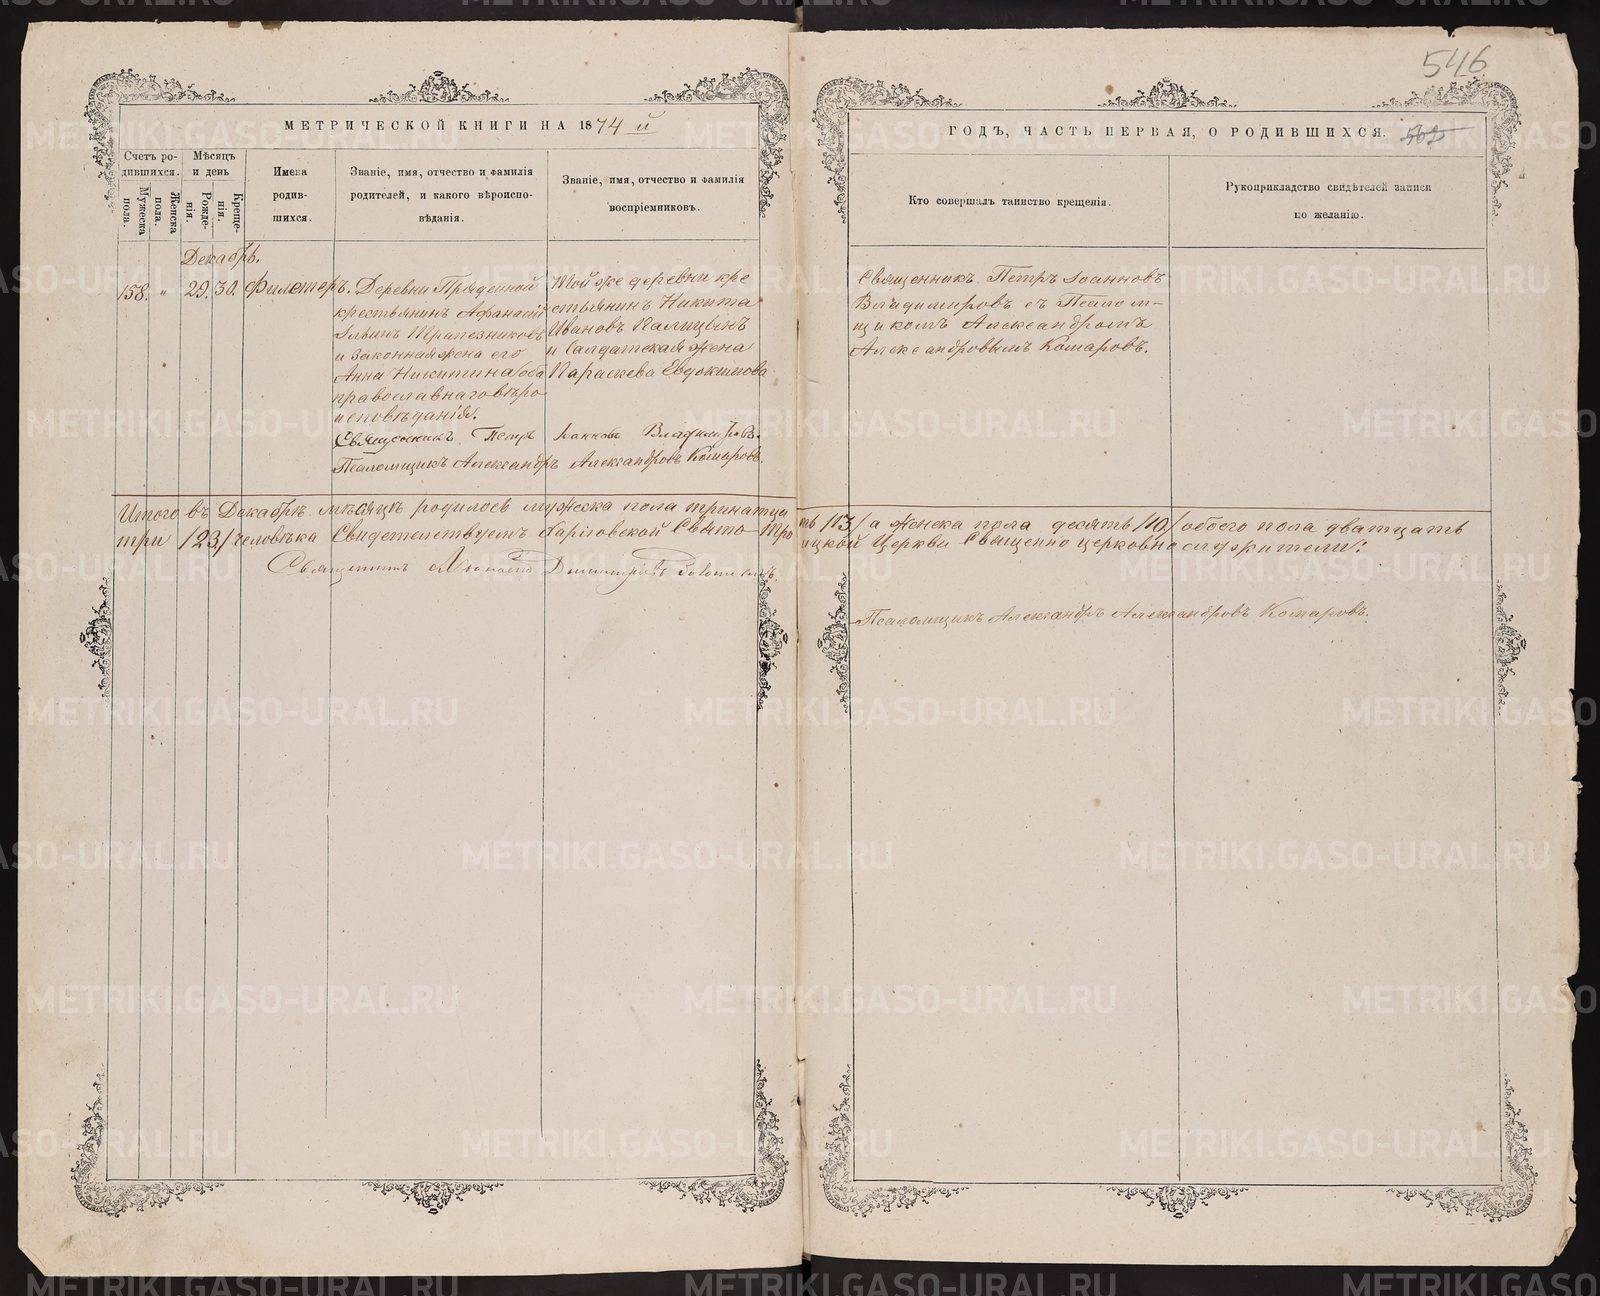 546
МЕТРИЧЕСКОЙ КНИГИ НА 1874 й
ГОДЪ, ЧАСТЬ ПЕРВАЯ, О РОДИВШИХСЯ.
Счетъ ро-
дившихся.
Мужеска
пола.
Женска
пола.
Мѣсяцъ
и день
Рожде-
нія.
Креще-
нія.
Имена
родив-
шихся.
Званіе, имя, отчество и фамилія
родителей, и какого вѣроиспо-
вѣданія.
Званіе, имя, отчество и фамилія
воспріемниковъ.
Кто совершалъ таинство крещенія.
Рукоприкладство свидѣтелей записи
по желанію.
Декабрь.
158. „ 29. 30. Филетеръ.
Деревни
крестьянинъ Афанасій
Ильинъ Трапезниковъ
и законная жена его
Анна Никитина оба
православнаго вѣро
исповѣданія.
Той же деревни кре
стьянинъ Никита
Ивановъ Палицынъ
и Салдатская жена
Параскева Евдокимова
Священникъ Петръ Іоанновъ
Владимировъ съ Псалом-
щикомъ Александромъ
Александровымъ Комаровъ.
Священникъ Петръ Іоанновъ Владимировъ.
Псаломщикъ Александръ Александровъ Комаровъ.
Итого въ Декабрѣ мѣсяцѣ родилось мужеска пола тринатца
ть /13/ а женска пола десять /10/ обоего пола дватцать
три /23/ человѣка Свидетельствуемъ Свято Тро
ицкой Церкви Священно церковно служители:
Священникъ Димитріевъ
Псаломщикъ Александръ Александровъ Комаровъ.
METRIKI.GASO-URAL.RU